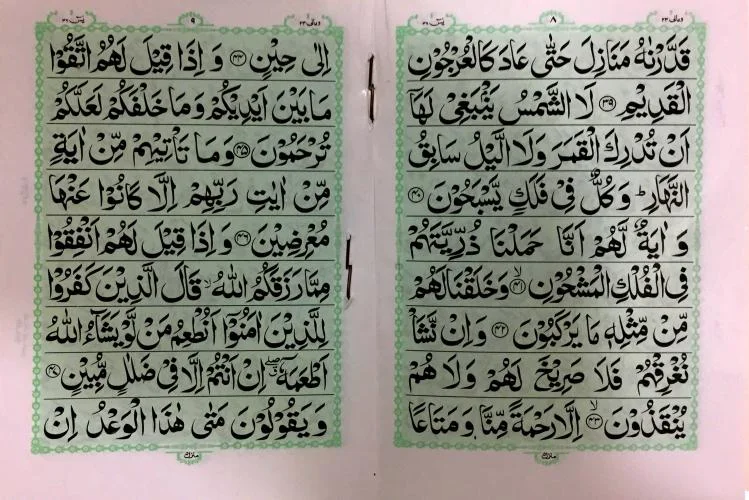 ومالی ۲۳ ۸ یٰسٓ ۳۶
قَدَّرْنٰهُ مَنَازِلَ حَتّٰى عَادَ كَالْعُرْجُوْنِ
الْقَدِيْمِ ۳۹ لَا الشَّمْسُ يَنْۢبَغِىْ لَهَاۤ
اَنْ تُدْرِكَ الْقَمَرَ وَلَا الَّيْلُ سَابِقُ
النَّهَارِ ؕ وَ كُلٌّ فِىْ فَلَكٍ يَّسْبَحُوْنَ ۴۰
وَ اٰيَةٌ لَّهُمْ اَنَّا حَمَلْنَا ذُرِّيَّتَهُمْ
فِى الْفُلْكِ الْمَشْحُوْنِ ۙ۴۱ وَخَلَقْنَا لَهُمْ
مِّنْ مِّثْلِهٖ مَا يَرْكَبُوْنَ ۴۲ وَ اِنْ نَّشَاْ
نُغْرِقْهُمْ فَلَا صَرِيْخَ لَهُمْ وَلَا هُمْ
يُنْقَذُوْنَ ۙ۴۳ اِلَّا رَحْمَةً مِّنَّا وَ مَتَاعًا
منزل
ومالی ۲۳ ۹ یٰسٓ ۳۶
اِلٰى حِيْنٍ ۴۴ وَ اِذَا قِيْلَ لَهُمُ اتَّقُوْا
مَا بَيْنَ اَيْدِيْكُمْ وَ مَا خَلْفَكُمْ لَعَلَّكُمْ
تُرْحَمُوْنَ ۴۵ وَ مَا تَاْتِيْهِمْ مِّنْ اٰيَةٍ
مِّنْ اٰيٰتِ رَبِّهِمْ اِلَّا كَانُوْا عَنْهَا
مُعْرِضِيْنَ ۴۶ وَ اِذَا قِيْلَ لَهُمْ اَنْفِقُوْا
مِمَّا رَزَقَكُمُ اللّٰهُ ۙ قَالَ الَّذِيْنَ كَفَرُوْا
لِلَّذِيْنَ اٰمَنُوْۤا اَنُطْعِمُ مَنْ لَّوْ يَشَآءُ اللّٰهُ
اَطْعَمَهٗۤ ۖ اِنْ اَنْتُمْ اِلَّا فِىْ ضَلٰلٍ مُّبِيْنٍ ۴۷
وَ يَقُوْلُوْنَ مَتٰى هٰذَا الْوَعْدُ اِنْ
منزل